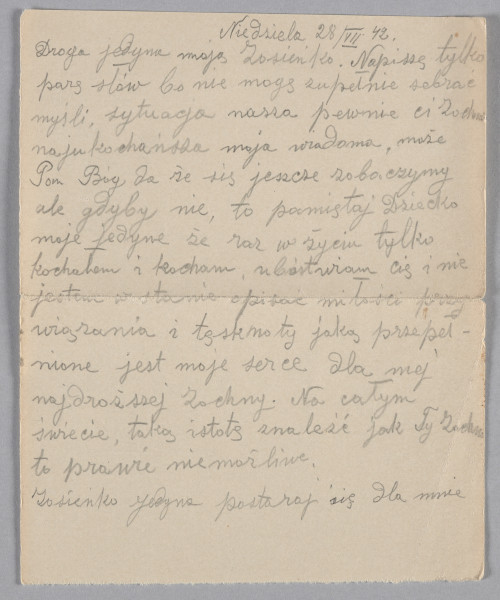 Niedziela 28/III 42.
Droga jedyna moja Zosieńko. Napiszę tylko
parę słów bo nie mogę zupełnie zebrać
myśli, sytuacja nasza pewnie ci Zochno
najukochańsza moja wiadoma, może
Pan Bóg da że się jeszcze zobaczymy
ale gdyby nie, to pamiętaj Dziecko
moje jedyne że raz w życiu tylko
kochałem i kocham, ubóstwiam cię i nie
jestem w stanie opisać miłości przy
wiązania i tęsknoty jaką przepeł-
nione jest moje serce dla mej
najdroższej Zochny. Na całym
świecie, taką istotę znaleźć jak Ty Zochno
to prawie niemożliwe.
Zosieńko jedyna postaraj się dla mnie